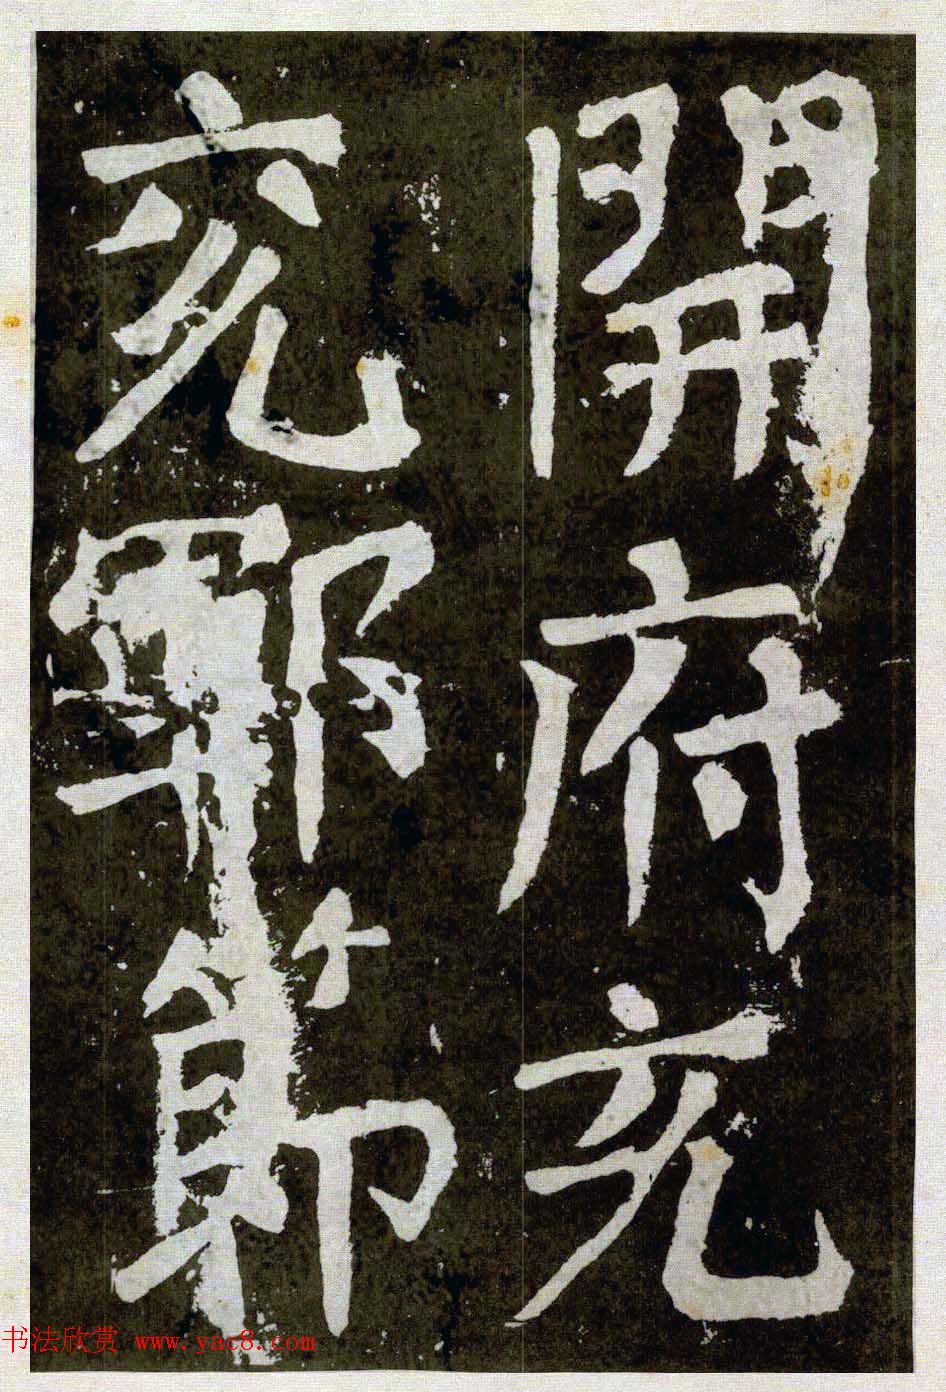 開府充
兖鄆節
书法欣赏 www.yac8.com